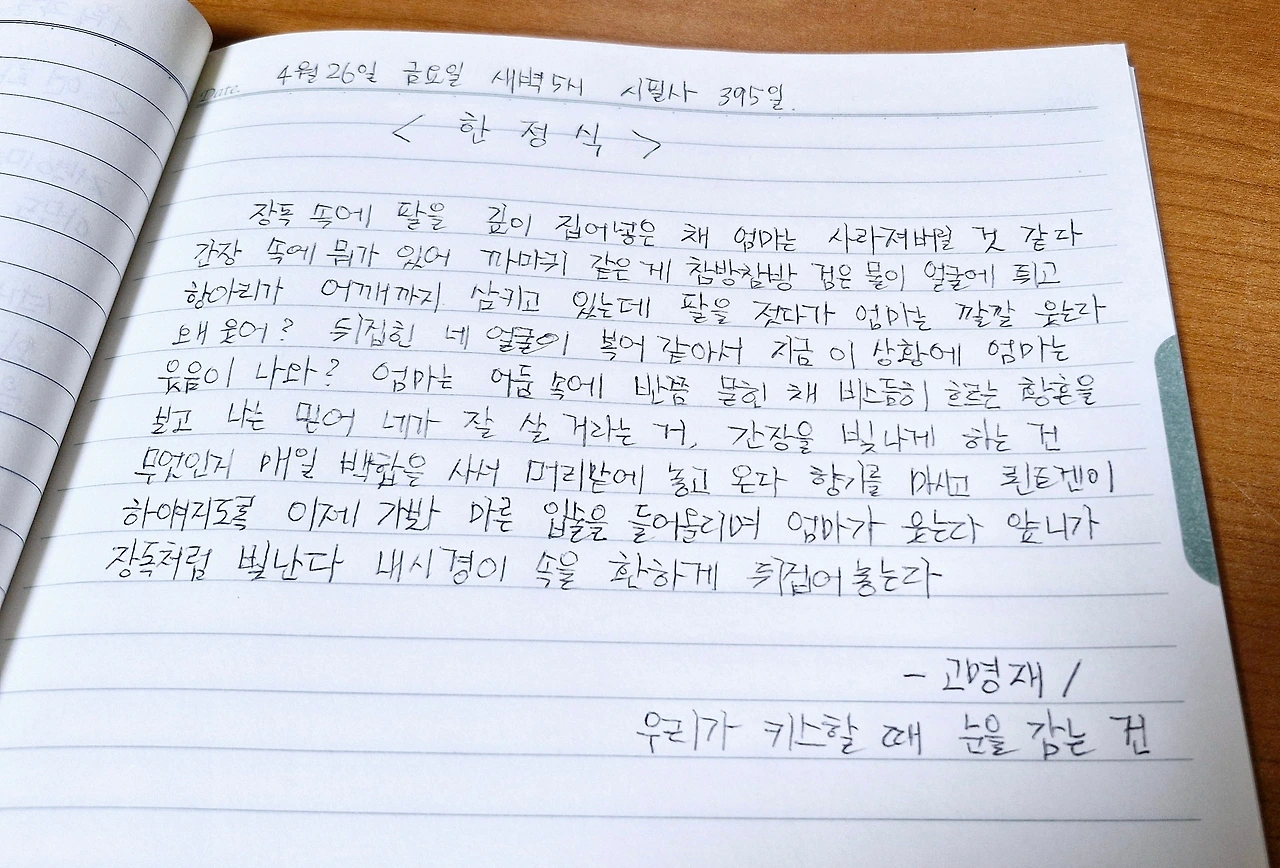 Date. 4월 26일 금요일 새벽 5시 시필사 395일.
< 한 정 식 >
장독 속에 팔을 깊이 집어넣은 채 엄마는 사라져버릴 것 같다
간장 속에 뭐가 있어 까마귀 같은 게 참방참방 검은 물이 얼굴에 튀고
항아리가 어깨까지 삼키고 있는데 팔을 젓다가 엄마는 깔깔 웃는다
왜 웃어? 뒤집힌 네 얼굴이 복어 같아서 지금 이 상황에 엄마는
웃음이 나와? 엄마는 어둠 속에 반쯤 묻힌 채 비스듬히 흐르는 황혼을
보고 나는 믿어 네가 잘 살 거라는 거, 간장을 빛나게 하는 건
무엇인지 매일 백합을 사서 머리맡에 놓고 온다 향기를 마시고 뢴트겐이
하얘지도록 이제 가봐 마른 입술을 들어올리며 엄마가 웃는다 앞니가
장독처럼 빛난다 내시경이 속을 환하게 뒤집어놓는다
- 고명재 /
우리가 키스할 때 눈을 감는 건